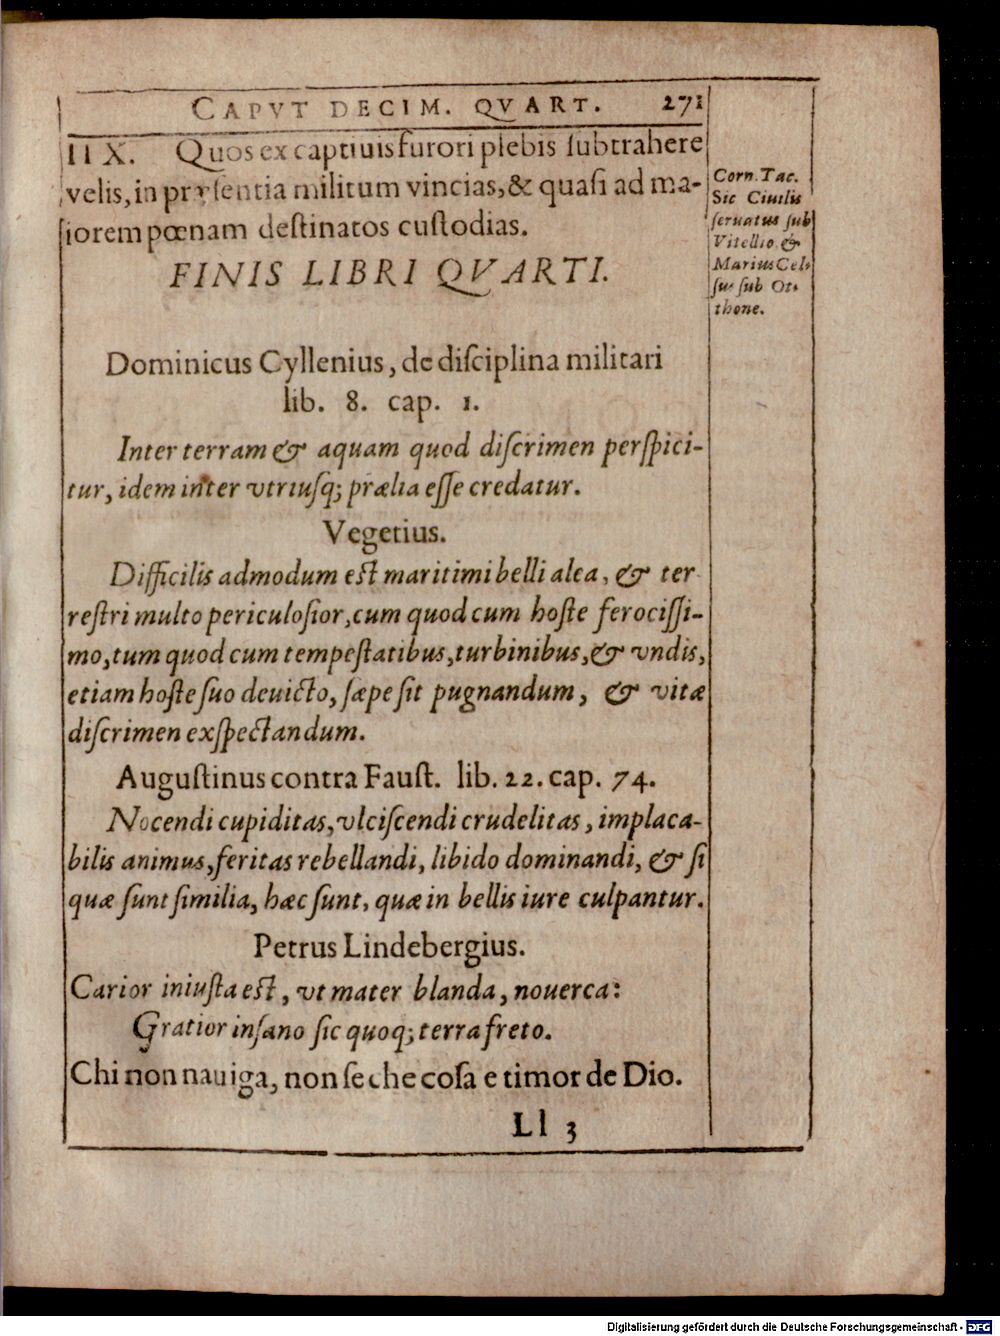 CAPVT DECIM. QVART. 271
IIX. Quos ex captiuis furori plebis ſubtrahere
velis, in præſentia militum vincias, & quaſi ad ma-
iorem pœnam deſtinatos cuſtodias.
Corn. Tac.
Sic Ciuilis
ſeruatus ſub
Vitellio &
Marius Cel-
ſus ſub Ot-
thone.
FINIS LIBRI QVARTI.
Dominicus Cyllenius, de diſciplina militari
lib. 8. cap. 1.
Inter terram & aquam quod diſcrimen perſpici-
tur, idem inter vtriuſq; prælia eſſe credatur.
Vegetius.
Difficilis admodum eſt maritimi belli alea, & ter
reſtri multo periculoſior, cum quod cum hoſte ferociſſi-
mo, tum quod cum tempeſtatibus, turbinibus, & vndis,
etiam hoſte ſuo deuicto, ſæpe ſit pugnandum, & vitæ
diſcrimen exſpectandum.
Auguſtinus contra Fauſt. lib. 22. cap. 74.
Nocendi cupiditas, vlciſcendi crudelitas, implaca-
bilis animus, feritas rebellandi, libido dominandi, & ſi
quæ ſunt ſimilia, hæc ſunt, quæ in bellis iure culpantur.
Petrus Lindebergius.
Carior iniuſta eſt, vt mater blanda, nouerca:
Gratior inſano ſic quoq; terra freto.
Chi non nauiga, non ſe che coſa e timor de Dio.
Ll 3
Digitalisierung gefördert durch die Deutsche Forschungsgemeinschaft - DFG